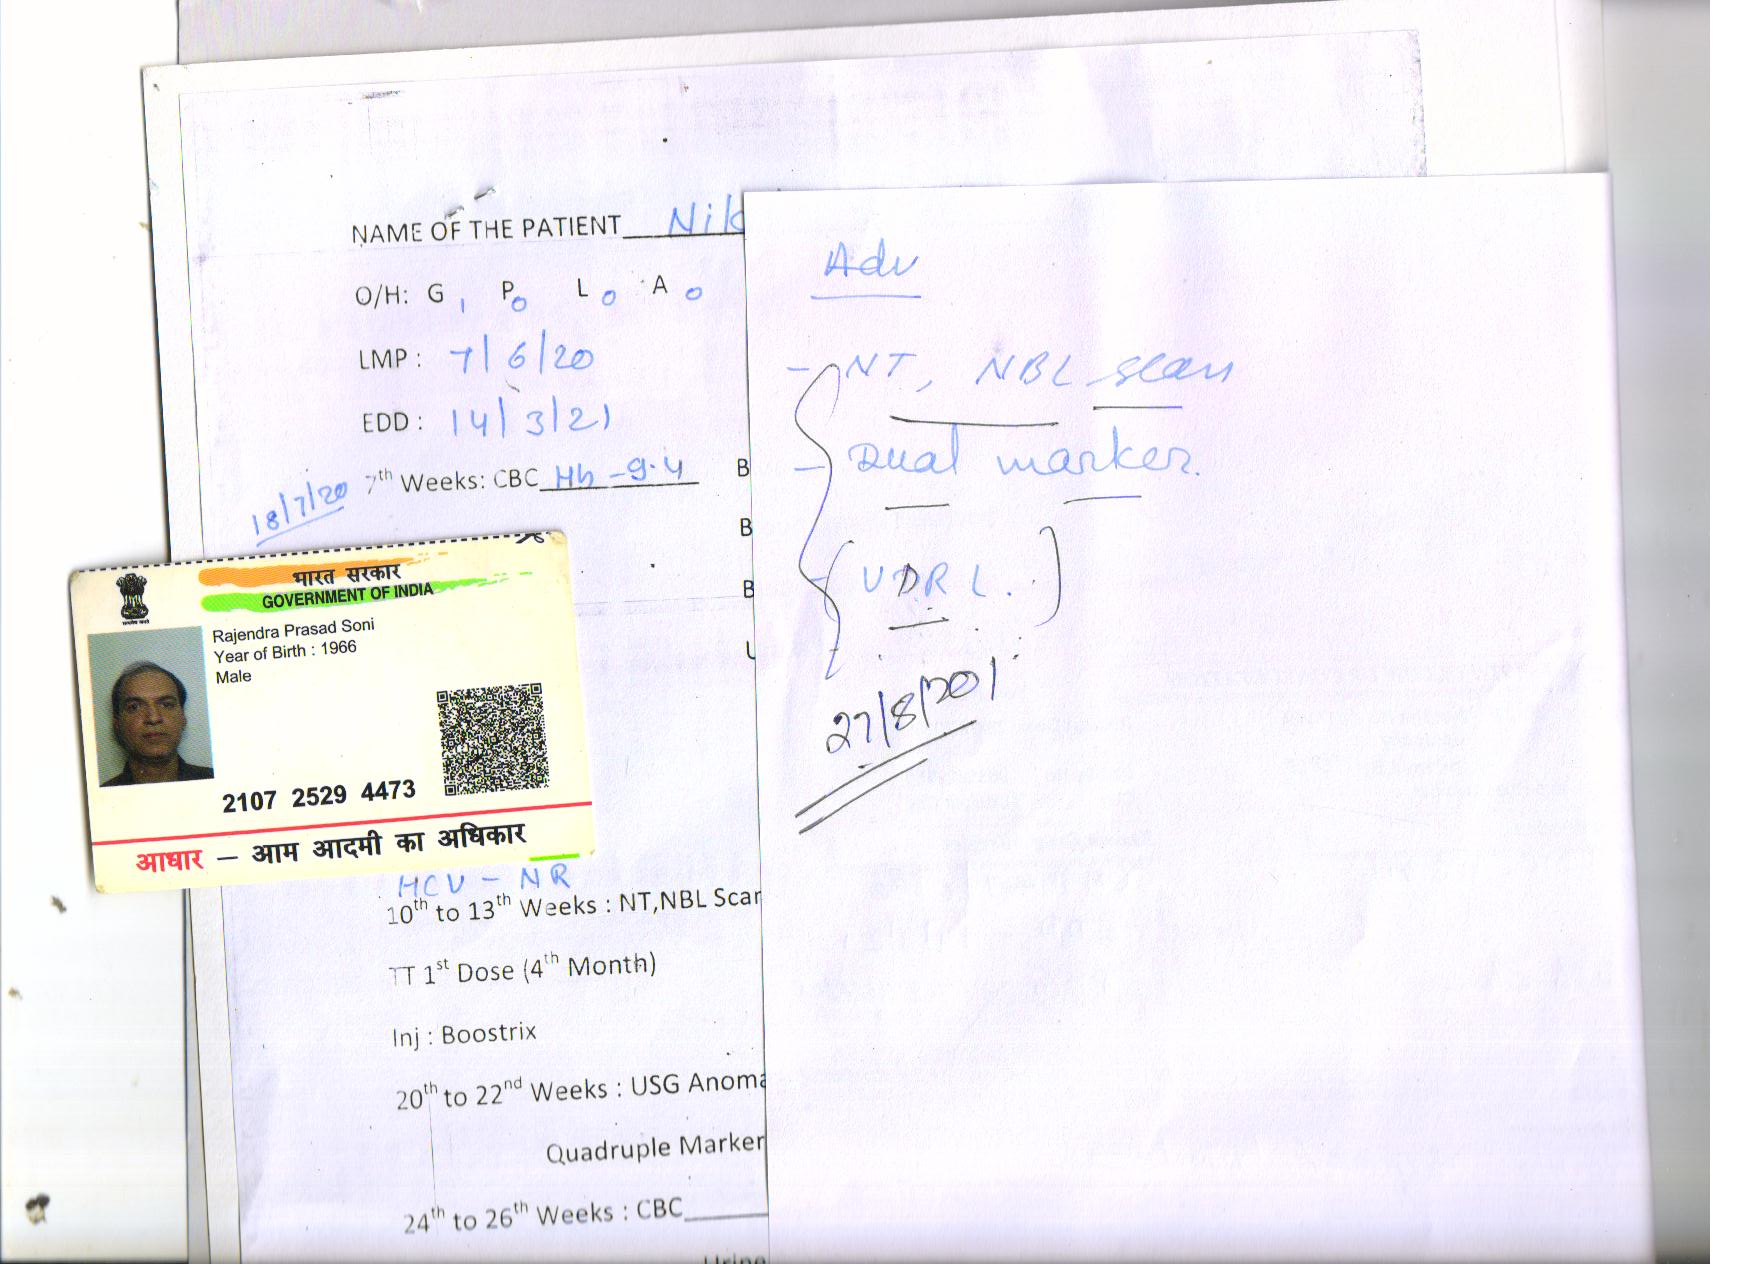 NAME OF THE PATIENT Nik
O/H: G 1 P 0 L 0 A 0
LMP : 7/6/20
EDD : 14/3/21
18/7/20 7th Weeks: CBC Hb - 9.4 B
B
B
U
भारत सरकार
GOVERNMENT OF INDIA
Rajendra Prasad Soni
Year of Birth : 1966
Male
2107 2529 4473
आधार – आम आदमी का अधिकार
HCV - NR
10th to 13th Weeks : NT,NBL Scan
TT 1st Dose (4th Month)
Inj : Boostrix
20th to 22nd Weeks : USG Anoma
Quadruple Marker
24th to 26th Weeks : CBC
Urine
Adv
- NT, NBL scan
- Dual marker.
- (VDRL.)
27/8/20